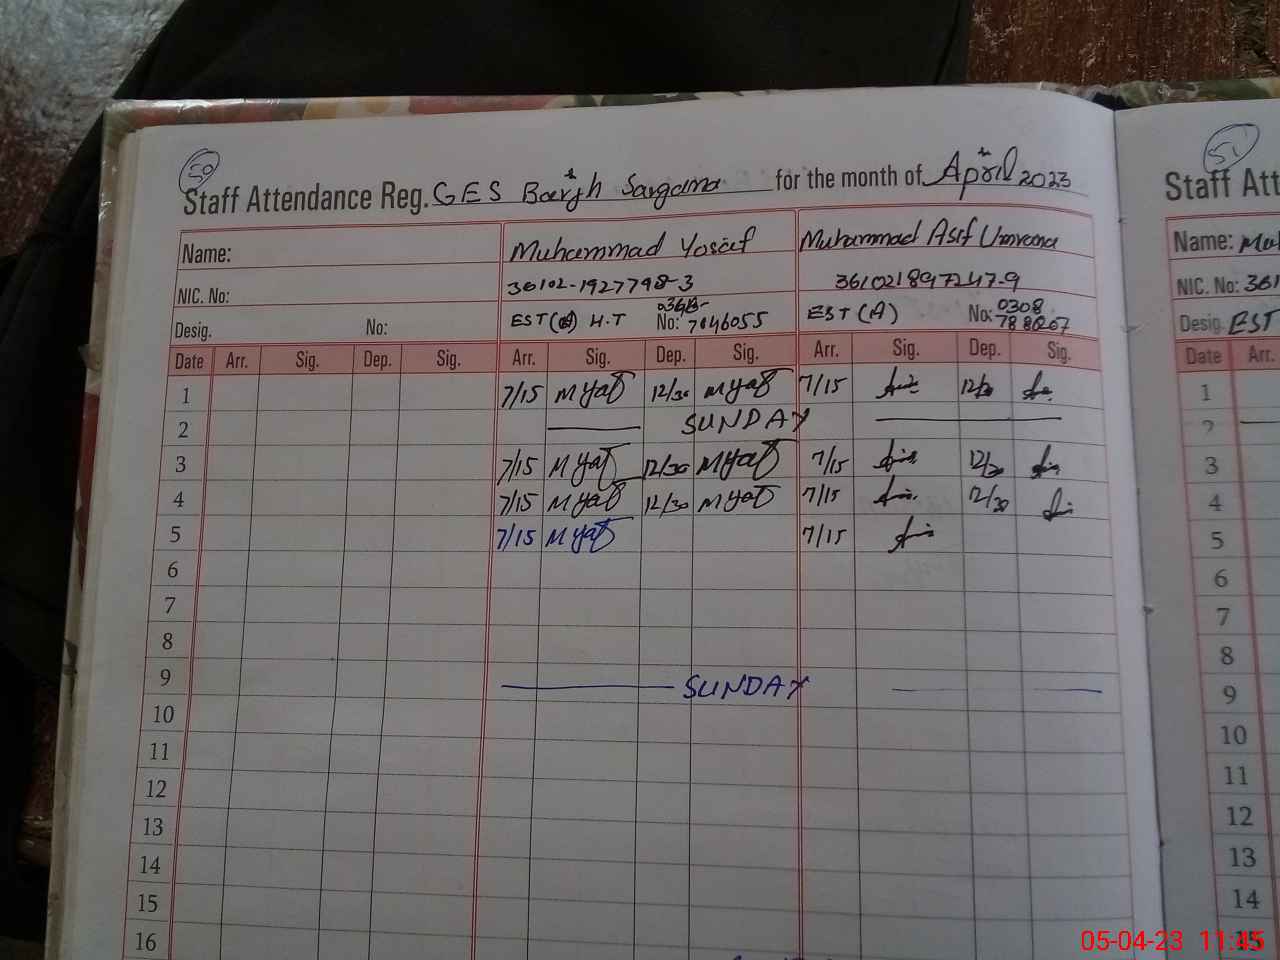 50
51
Staff Attendance Reg. GES Bargh Sargana for the month of April 2023
Staff Att
Name: Muhammad Yosaf Muhammad Asif Umrana
Name: Mu
NIC. No: 36102-1927798-3 361021897247-9
NIC. No: 361
Desig. No: EST H.T No: 7046055 EST (A) No: 0308
Desig. EST
Date Arr. Sig. Dep. Sig. Arr. Sig. Dep. Sig. Arr. Sig. Dep. Sig.
Date Arr.
1 7/15 M Yaf 12/30 M Yaf 7/15 12/30
1
2 SUNDAY
2
3 7/15 M Yaf 12/30 M Yaf 7/15 12/30
3
4 7/15 M Yaf 12/30 M Yaf 7/15 12/30
4
5 7/15 M Yaf 7/15
5
6
6
7
7
8
8
9 SUNDAY
9
10
10
11
11
12
12
13
13
14
14
15
15
16
05-04-23 11:45